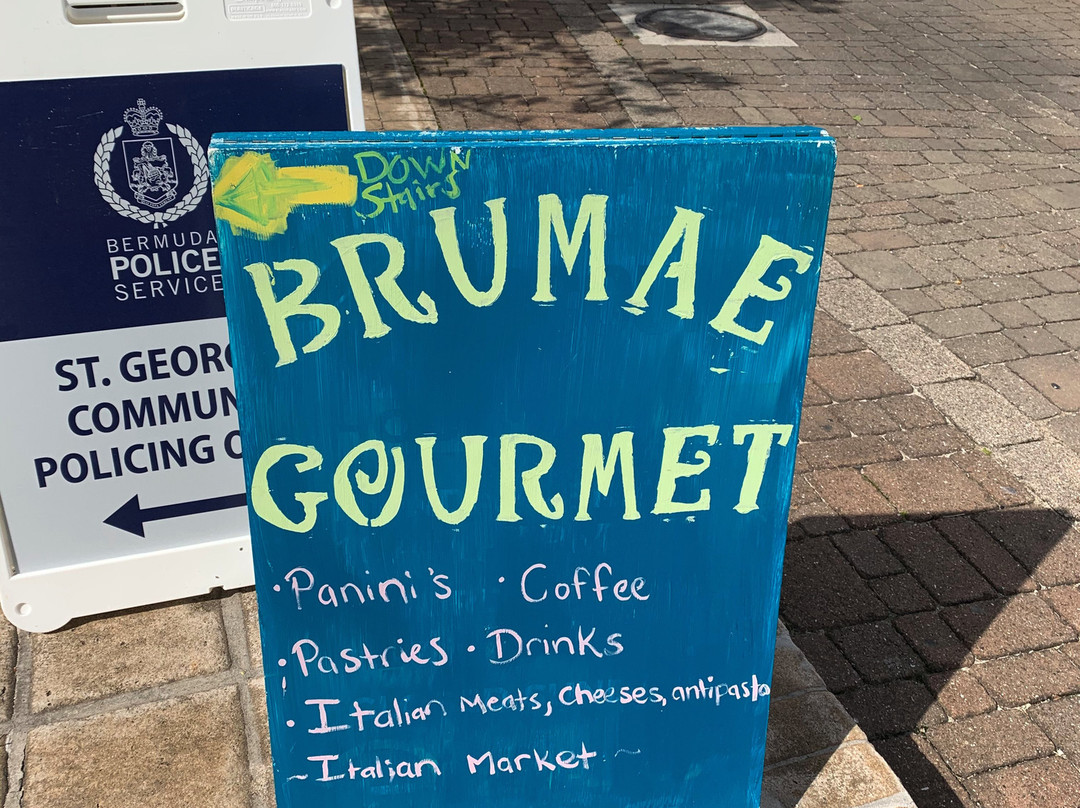 BERMUDA
POLICE
SERVICE
ST. GEORG
COMMUN
POLICING
DOWN
Stairs
BRUMAE
GOURMET
• Panini's • Coffee
• Pastries • Drinks
• Italian Meats, Cheeses, antipasto
~ Italian Market ~